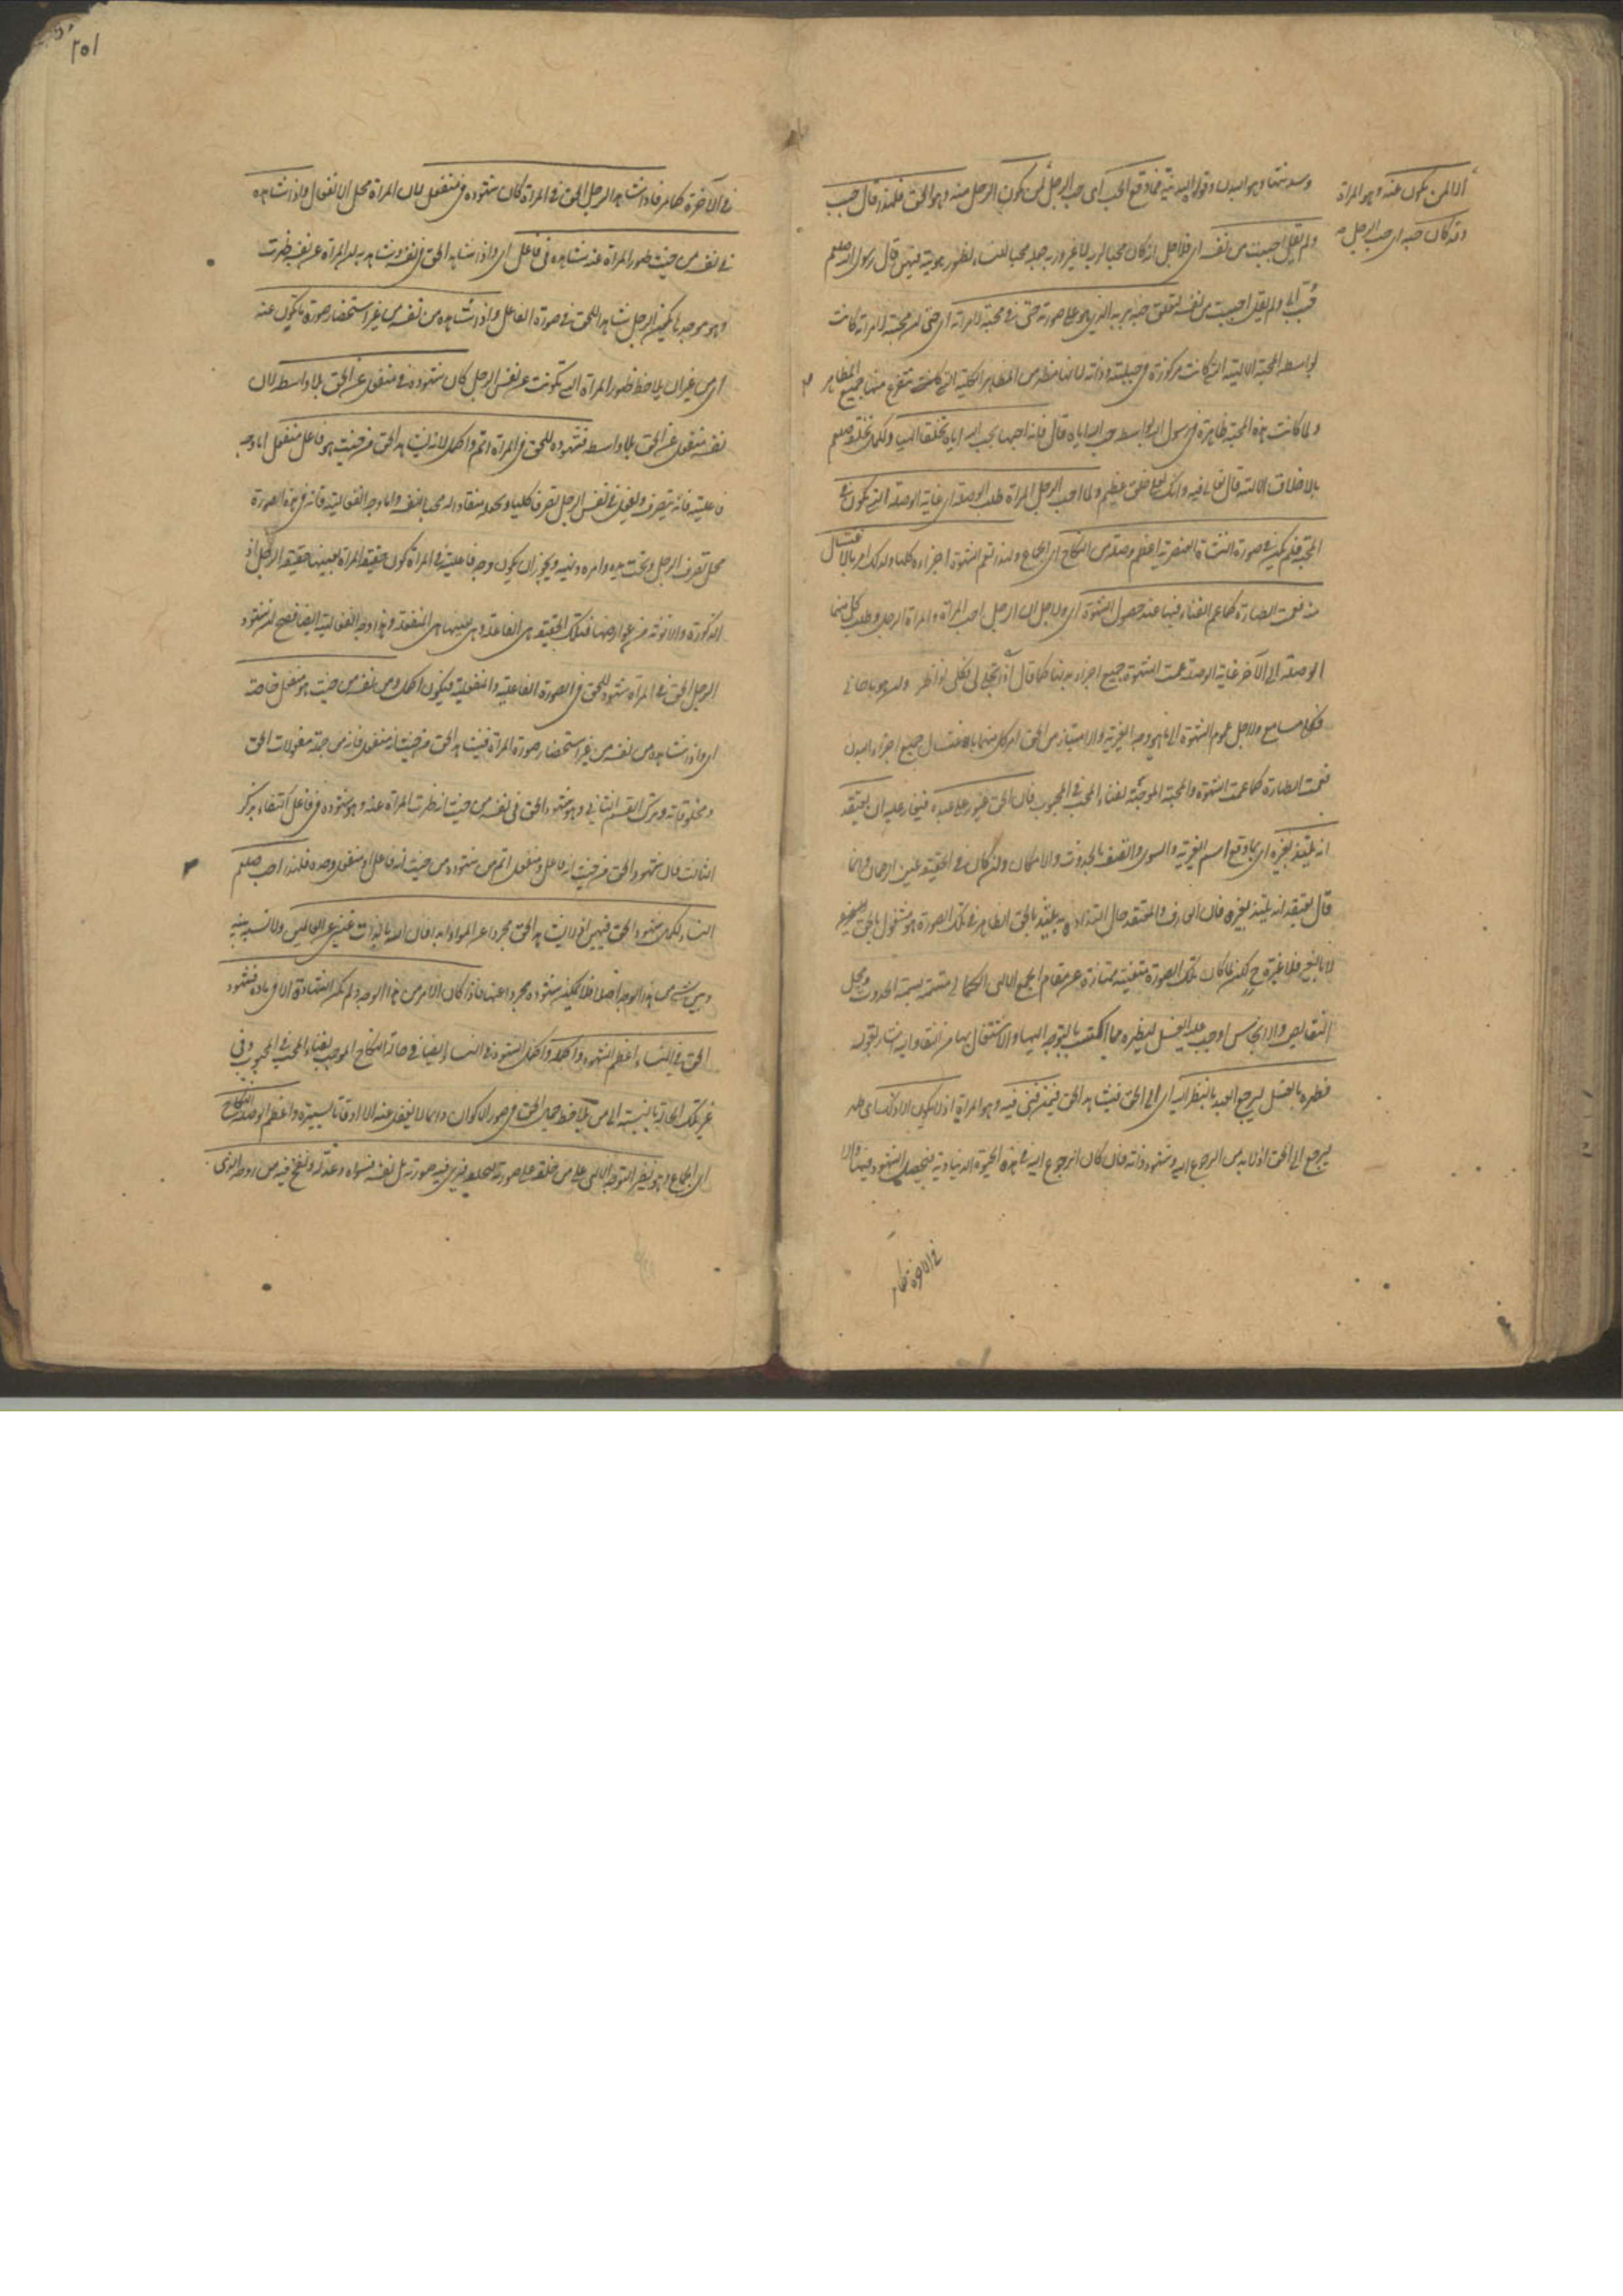 الا لمن يكون عنه وهو المراة
وقد كان حبه اى حب الرجل
وسدنتها وهو البدن وقواه البدنية فما وقع الحب اى حب الرجل لمن تكون الرجل منه وهو الحق فلهذا قال حبب
ولم يقل احببت من نفسه اى فلاجل انه كان محبا لربه لا غير وربه جعله محبا للنساء لظهور هويته فيهن قال رسول الله صلعم
حبب الى ولم يقل احببت من نفسه لتعلق حبه بربه الذى هو على صورته حتى فى محبته لامراته اى حتى ان محبته لامراته كانت
بواسطة المحبة الالهية التى كانت مركوزة فى جبلته وذاته لانها مظهر من المظاهر الكلية التى يتفرع منها جميع المظاهر
ولما كانت هذه المحبة ظاهرة فى رسول الله بواسطة حب الله اياه قال فانه احبها بحب الله اياه تخلقا الهيا ولكمال تخلقه صلعم
بالاخلاق الالهية قال تعالى فيه وانك لعلى خلق عظيم ولما احب الرجل المراة طلب الوصلة اى غاية الوصلة التى تكون فى
المحبة فلم يكن فى صورة النشاة العنصرية اعظم وصلة من النكاح اى الجماع ولهذا تعم الشهوة اجزاءه كلها ولذلك امر بالاغتسال
منه فعمت الطهارة كما عم الفناء فيها عند حصول الشهوة اى ولاجل ان الرجل احب المراة والمراة الرجل وطلب كل منهما
الوصلة الى الاخر غاية الوصلة عمت الشهوة جميع اجزاء بدنهما كما قال اذا تجلى لى فكلى نواظر وان هو ناجانى
فكلى مسامع ولاجل عموم الشهوة التى بها هو وجه الغيرية والامتياز من الحق امر كل منهما باغتسال جميع اجزاء البدن
فعمت الطهارة كما عمت الشهوة والمحبة الموجبة لفناء المحب فى المحبوب فان الحق غيور على عبده فيغار عليه ان يعتقد
انه يلتذ بغيره اى بما وقع اسم الغيرية والسوى واتصف بالحدوث والامكان وان كان فى الحقيقة عين الرحمان وانما
قال يعتقد انه يلتذ بغيره فان العارف والمعتقد حال التذاذه به يلتذ بالحق الظاهر فى تلك الصورة وهو مشغول بالحق
لا بالغير فلا غيرة ح لكن لما كان تلك الصورة متعينة ممتازة عن مقام الجمع الالهى الكمالى متسمة بسمة الحدوث ومحل
النقايص والانجاس اوجب عليه الغسل ليطهره مما اكتسب بالتوجه اليها والاشتغال بها من النقايص واليه اشار بقوله
فطهره بالغسل ليرجع العبد بالنظر اليه اى الى الحق فيشاهد الحق فيمن فنى فيه وهو المراة اذ لا يكون الا ذلك اى ليطهر
ليرجع الى الحق اذ لا بد من الرجوع اليه وشهود ذاته فان كان الرجوع اليه فى هذه الحيوة الدنياوية فيحصل الشهود فيها والا
فى الاخرة كما مر
١٥٢
فى الاخرة كما مر فاذا شاهد الرجل الحق فى المراة كان شهوده فى منفعل لان المراة محل الانفعال واذا شاهده
فى نفسه من حيث ظهور المراة عنه شاهده فى فاعل اى واذا شاهد الحق فى نفسه وشاهد به ان المراة عن نفسه ظهرت
وهو موجدها حينئذ الرجل شاهد للحق فى صورة الفاعل واذا شاهده من نفسه من غير استحضار صورة ما تكون عنه
اى من غير ان يلاحظ ظهور المراة التى تكونت عن نفس الرجل كان شهوده فى منفعل عن الحق بلا واسطة لان
نفسه منفعل عن الحق بلا واسطة فشهوده للحق فى المراة اتم واكمل لانه يشاهد الحق من حيث هو فاعل منفعل اما وجه
فاعليته فانه يتصرف ويفعل فى نفس الرجل تصرفا كليا ويجعله منقادا له محبا لنفسه واما وجه انفعاليته فانه فى هذه الصورة
محل تصرف الرجل وتحت يده وامره ونهيه ويجوز ان يكون وجه فاعليته فى المراة كون حقيقة المراة بعينها حقيقة الرجل اذ
الذكورة والانوثة من عوارضها فتلك الحقيقة هى الفاعلة وهى بعينها هى المنفعلة وهذا وجه انفعالية ايضا فصح ان شهود
الرجل الحق فى المراة شهود للحق فى الصورة الفاعلية والمنفعلية فيكون اكمل ومن نفسه من حيث هو منفعل خاصة
اى واذا شاهده من نفسه من غير استحضار صورة المراة فيشاهد الحق من حيث انه منفعل فانه من جملة مفعولات الحق
ومخلوقاته وترك القسم الثانى وهو شهود الحق فى نفسه من حيث انه ظهرت المراة عنه وهو شهوده فى فاعل اكتفاء بذكر
الثالث فان شهود الحق من حيث انه فاعل ومنفعل اتم من شهوده من حيث انه فاعل او منفعل وحده فلهذا احب صلعم
النساء لكمال شهود الحق فيهن اذ لا يشاهد الحق مجردا عن المواد ابدا فان الله بالذات غنى عن العالمين ولا نسبة بينه
وبين شى من هذا الوجه اصلا فلا يمكن شهوده مجردا عنها فاذا كان الامر من هذا الوجه ولم تكن الشهادة الا فى مادة فشهود
الحق فى النساء اعظم الشهود واكمله واكمل الشهود فى النساء ايضا فى حالة النكاح الموجب لفناء المحب فى المحبوب وفى
غير تلك الحالة بالنسبة الى من يلاحظ جمال الحق فى صور الاكوان دائما لا يغفل عنه الا اوقاتا يسيرة واعظم الوصلة النكاح
اى الجماع وهو نظير التوجه الالهى على من خلقه على صورته ليخلفه فيرى فيه صورته بل نفسه فسواه وعدله ونفخ فيه من روحه الذى